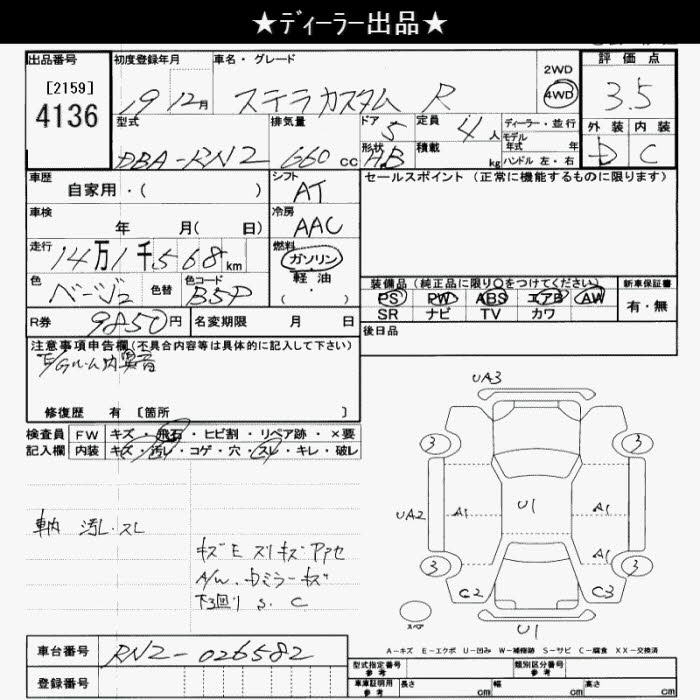 ★ディーラー出品★
出品番号 初度登録年月 車名・グレード 2WD 評価点
[2159]
4136 19 12月 ステラカスタム R 4WD 3.5
型式 排気量 ドア 5 定員 4人 ディーラー・並行 外装 内装
モデル年式 年
DBA-RN2 660cc 形状 H.B 積載 kg ハンドル 左・右 D C
車歴 シフト セールスポイント (正常に機能するものに限ります)
自家用・( ) AT
車検 年 月( 日) 冷房 AAC
走行 14万1千568km 燃料 ガソリン
軽油
・( )
色 ベージュ 色替 色コード B5P
装備品 (純正品に限り○をつけてください) 新車保証書
PS PW ABS エアB AW 有・無
SR ナビ TV カワ
R券 9850円 名変期限 月 日 後日品
注意事項申告欄(不具合内容等は具体的に記入して下さい)
E/Gルーム内異音
修復歴 有 [箇所 ]
検査員 FW キズ・飛石・ヒビ割・リペア跡・×要
記入欄 内装 キズ・汚レ・コゲ・穴・スレ・キレ・破レ
UA3
3 3
車内 汚レ・スレ
UA2 A1 U1 A1
A1
キズE スリキズ
A/W、
3 3
下回り S. C
C2 C3
スペア
U1
A-キズ E-エクボ U-凹み W-補修跡 S-サビ C-腐食 XX-交換済
車台番号 RN2-026582
登録番号
型式指定番号 参考 類別区分番号 参考
車庫証明用 参考 長さ cm 幅 cm 高さ cm